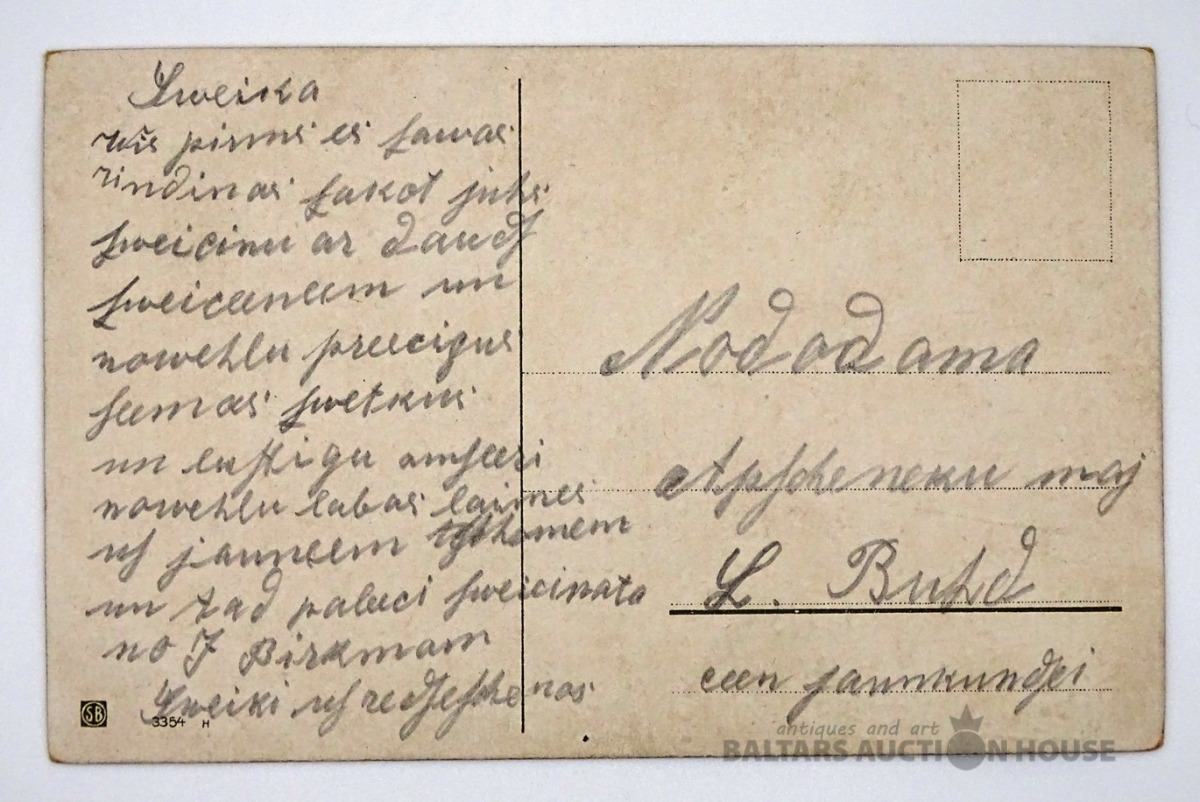 Sweika
wis pirms es sawas
rindinas sakot juhs
sweicinu ar daudz
sweiceeneem un
nowehlu preecigus
seemas swetkus
un lustigu
nowehlu labas laimes
us jauneem
un tad paleeci sweicinata
no J Birkman
Sweiki us redseschenos
Nododama
Apscheneku maj
L. Buhd
ceen jaunkundsei
SB
3354 H
antiques and art
BALTARS AUCTION HOUSE